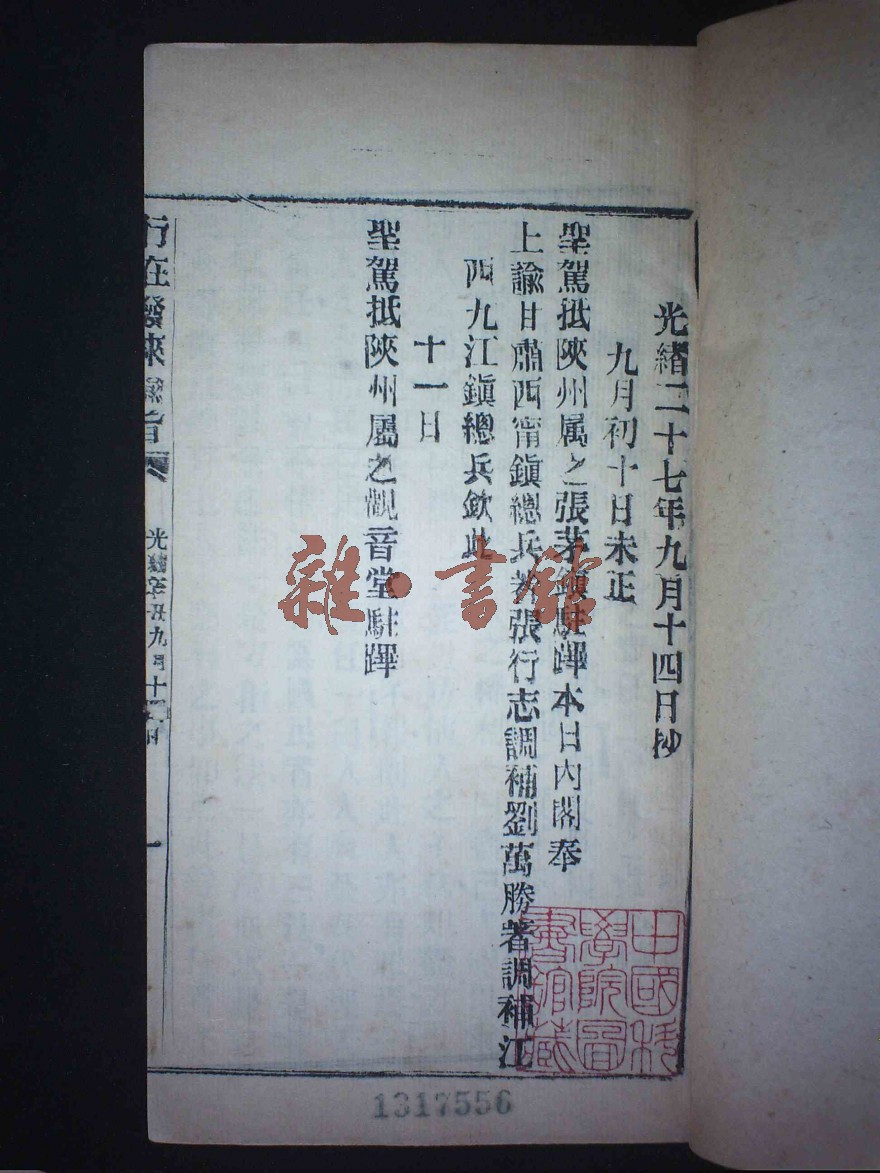 光緒二十七年九月十四日抄
九月初十日未正
聖駕抵陝州属之張茅鎮駐蹕本日內閣奉
上諭甘肅西甯鎮總兵著張行志調補劉萬勝著調補江
西九江鎮總兵欽此
十一日
聖駕抵陝州屬之觀音堂駐蹕
行在發
光緒辛丑九月十
一
雜·書館
中國科
學院圖
書館藏
1317556